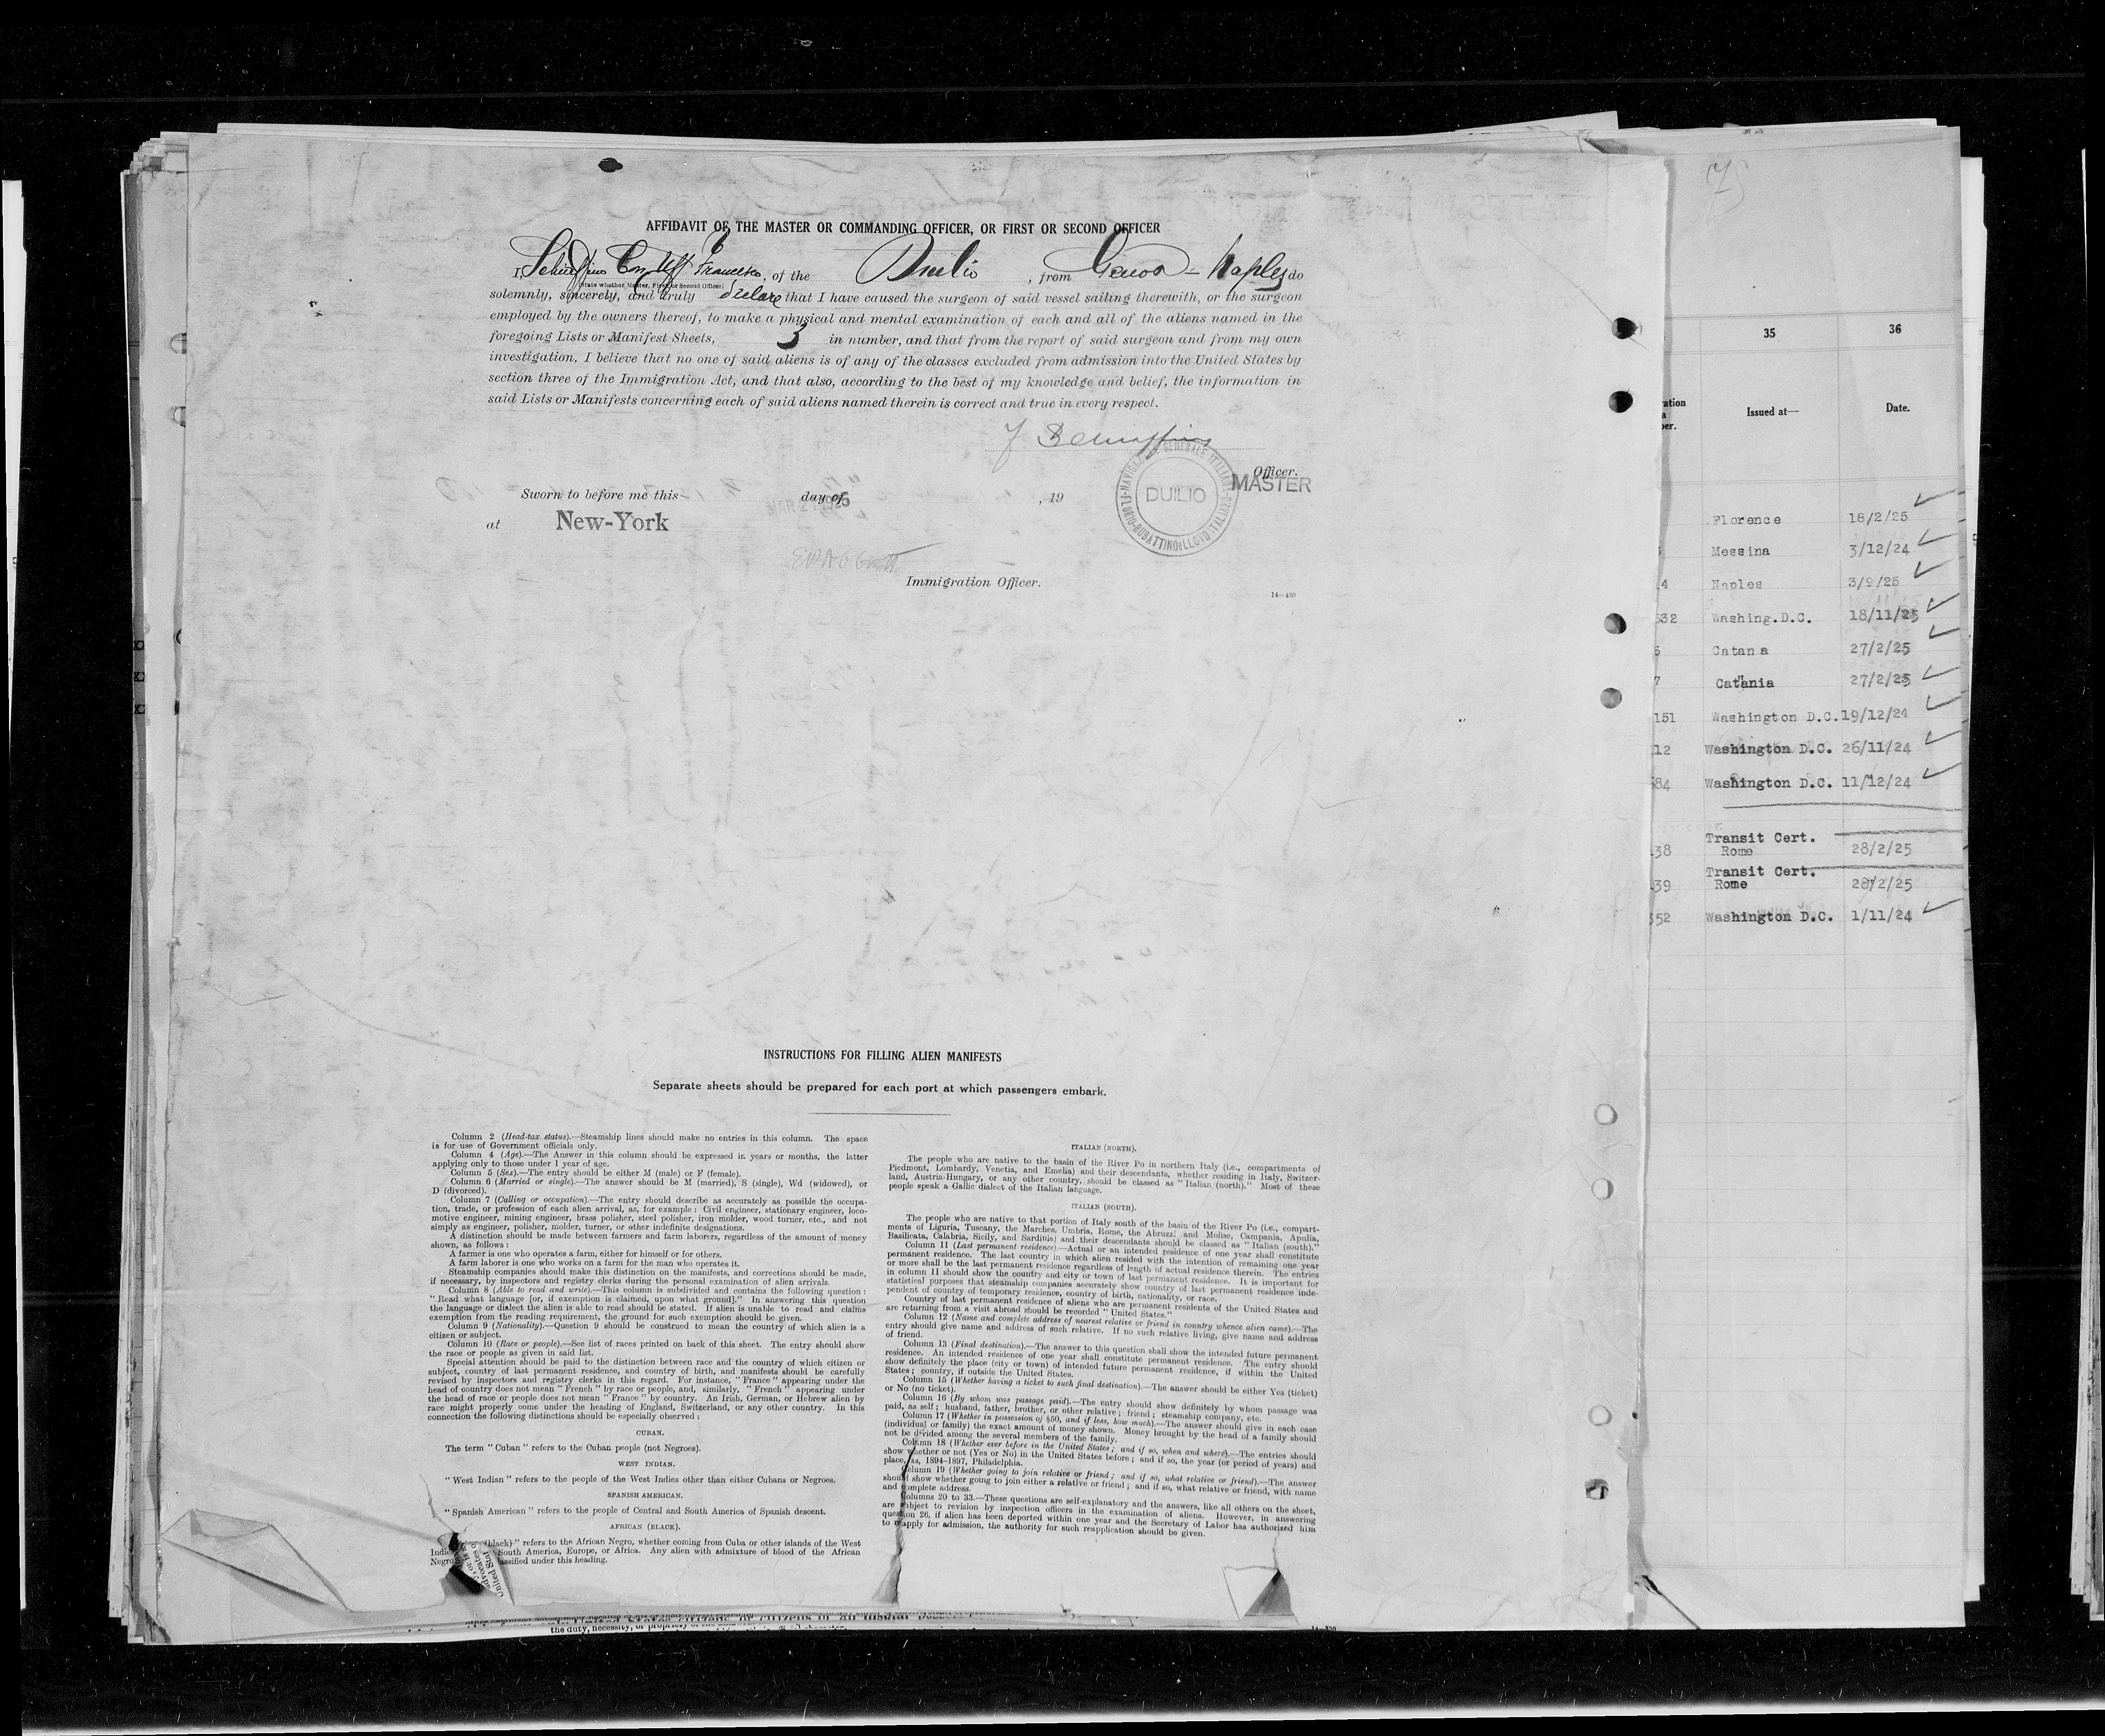 AFFIDAVIT OF THE MASTER OR COMMANDING OFFICER, OR FIRST OR SECOND OFFICER
I, Schiaffino Francesco, of the Duilio, from Genoa - Naples do
(State whether Master, First, or Second Officer)
solemnly, sincerely, and truly declare that I have caused the surgeon of said vessel sailing therewith, or the surgeon
employed by the owners thereof, to make a physical and mental examination of each and all of the aliens named in the
foregoing Lists or Manifest Sheets, 3 in number, and that from the report of said surgeon and from my own
investigation, I believe that no one of said aliens is of any of the classes excluded from admission into the United States by
section three of the Immigration Act, and that also, according to the best of my knowledge and belief, the information in
said Lists or Manifests concerning each of said aliens named therein is correct and true in every respect.
F Schiaffino
NAVIGAZIONE GENERALE ITALIANA
DUILIO
FLORIO-RUBATTINO & LLOYD ITALIANO
Officer.
MASTER
Sworn to before me this day of , 19
at New-York
Immigration Officer.
14—430
INSTRUCTIONS FOR FILLING ALIEN MANIFESTS
Separate sheets should be prepared for each port at which passengers embark.
Column 2 (Head-tax status).—Steamship lines should make no entries in this column. The space
is for use of Government officials only.
Column 4 (Age).—The Answer in this column should be expressed in years or months, the latter
applying only to those under 1 year of age.
Column 5 (Sex).—The entry should be either M (male) or F (female).
Column 6 (Married or single).—The answer should be M (married), S (single), Wd (widowed), or
D (divorced).
Column 7 (Calling or occupation).—The entry should describe as accurately as possible the occupa-
tion, trade, or profession of each alien arrival, as, for example: Civil engineer, stationary engineer, loco-
motive engineer, mining engineer, brass polisher, steel polisher, iron molder, wood turner, etc., and not
simply as engineer, polisher, molder, turner, or other indefinite designations.
A distinction should be made between farmers and farm laborers, regardless of the amount of money
shown, as follows:
A farmer is one who operates a farm, either for himself or for others.
A farm laborer is one who works on a farm for the man who operates it.
Steamship companies should make this distinction on the manifests, and corrections should be made,
if necessary, by inspectors and registry clerks during the personal examination of alien arrivals.
Column 8 (Able to read and write).—This column is subdivided and contains the following question:
"Read what language [or, if exemption is claimed, upon what ground]." In answering this question
the language or dialect the alien is able to read should be stated. If alien is unable to read and claims
exemption from the reading requirement, the ground for such exemption should be given.
Column 9 (Nationality).—Question 9 should be construed to mean the country of which alien is a
citizen or subject.
Column 10 (Race or people).—See list of races printed on back of this sheet. The entry should show
the race or people as given in said list.
Special attention should be paid to the distinction between race and the country of which citizen or
subject, country of last permanent residence, and country of birth, and manifests should be carefully
revised by inspectors and registry clerks in this regard. For instance, "France" appearing under the
head of country does not mean "French" by race or people, and, similarly, "French" appearing under
the head of race or people does not mean "France" by country. An Irish, German, or Hebrew alien by
race might properly come under the heading of England, Switzerland, or any other country. In this
connection the following distinctions should be especially observed:
CUBAN.
The term "Cuban" refers to the Cuban people (not Negroes).
WEST INDIAN.
"West Indian" refers to the people of the West Indies other than either Cubans or Negroes.
SPANISH AMERICAN.
"Spanish American" refers to the people of Central and South America of Spanish descent.
AFRICAN (BLACK).
(black)" refers to the African Negro, whether coming from Cuba or other islands of the West
South America, Europe, or Africa. Any alien with admixture of blood of the African
Negro classified under this heading.
ITALIAN (NORTH).
The people who are native to the basin of the River Po in northern Italy (i.e., compartments of
Piedmont, Lombardy, Venetia, and Emelia) and their descendants, whether residing in Italy, Switzer-
land, Austria-Hungary, or any other country, should be classed as "Italian (north)." Most of these
people speak a Gallic dialect of the Italian language.
ITALIAN (SOUTH).
The people who are native to that portion of Italy south of the basin of the River Po (i.e., compart-
ments of Liguria, Tuscany, the Marches, Umbria, Rome, the Abruzzi and Molise, Campania, Apulia,
Basilicata, Calabria, Sicily, and Sardinia) and their descendants should be classed as "Italian (south)."
Column 11 (Last permanent residence).—Actual or an intended residence of one year shall constitute
permanent residence. The last country in which alien resided with the intention of remaining one year
or more shall be the last permanent residence regardless of length of actual residence therein. The entries
in column 11 should show the country and city or town of last permanent residence. It is important for
statistical purposes that steamship companies accurately show country of last permanent residence inde-
pendent of country of temporary residence, country of birth, nationality, or race.
Country of last permanent residence of aliens who are permanent residents of the United States and
are returning from a visit abroad should be recorded "United States."
Column 12 (Name and complete address of nearest relative or friend in country whence alien came).—The
entry should give name and address of such relative. If no such relative living, give name and address
of friend.
Column 13 (Final destination).—The answer to this question shall show the intended future permanent
residence. An intended residence of one year shall constitute permanent residence. The entry should
show definitely the place (city or town) of intended future permanent residence, if within the United
States; country, if outside the United States.
Column 15 (Whether having a ticket to such final destination).—The answer should be either Yes (ticket)
or No (no ticket).
Column 16 (By whom was passage paid).—The entry should show definitely by whom passage was
paid, as self; husband, father, brother, or other relative; friend; steamship company, etc.
Column 17 (Whether in possession of $50, and if less, how much).—The answer should give in each case
(individual or family) the exact amount of money shown. Money brought by the head of a family should
not be divided among the several members of the family.
Column 18 (Whether ever before in the United States; and if so, when and where).—The entries should
show whether or not (Yes or No) in the United States before; and if so, the year (or period of years) and
place, as, 1894-1897, Philadelphia.
Column 19 (Whether going to join relative or friend; and if so, what relative or friend).—The answer
should show whether going to join either a relative or friend; and if so, what relative or friend, with name
and complete address.
Columns 20 to 33.—These questions are self-explanatory and the answers, like all others on the sheet,
are subject to revision by inspection officers in the examination of aliens. However, in answering
question 26, if alien has been deported within one year and the Secretary of Labor has authorized him
to reapply for admission, the authority for such reapplication should be given.
the duty, necessity, or
75
35 36
Issued at— Date.
Florence 18/2/25
Messina 3/12/24
4 Naples 3/9/25
532 Washing.D.C. 18/11/25
6 Catana 27/2/25
7 Catania 27/2/25
151 Washington D.C. 19/12/24
12 Washington D.C. 26/11/24
584 Washington D.C. 11/12/24
Transit Cert.
38 Rome 28/2/25
Transit Cert.
39 Rome 28/2/25
552 Washington D.C. 1/11/24